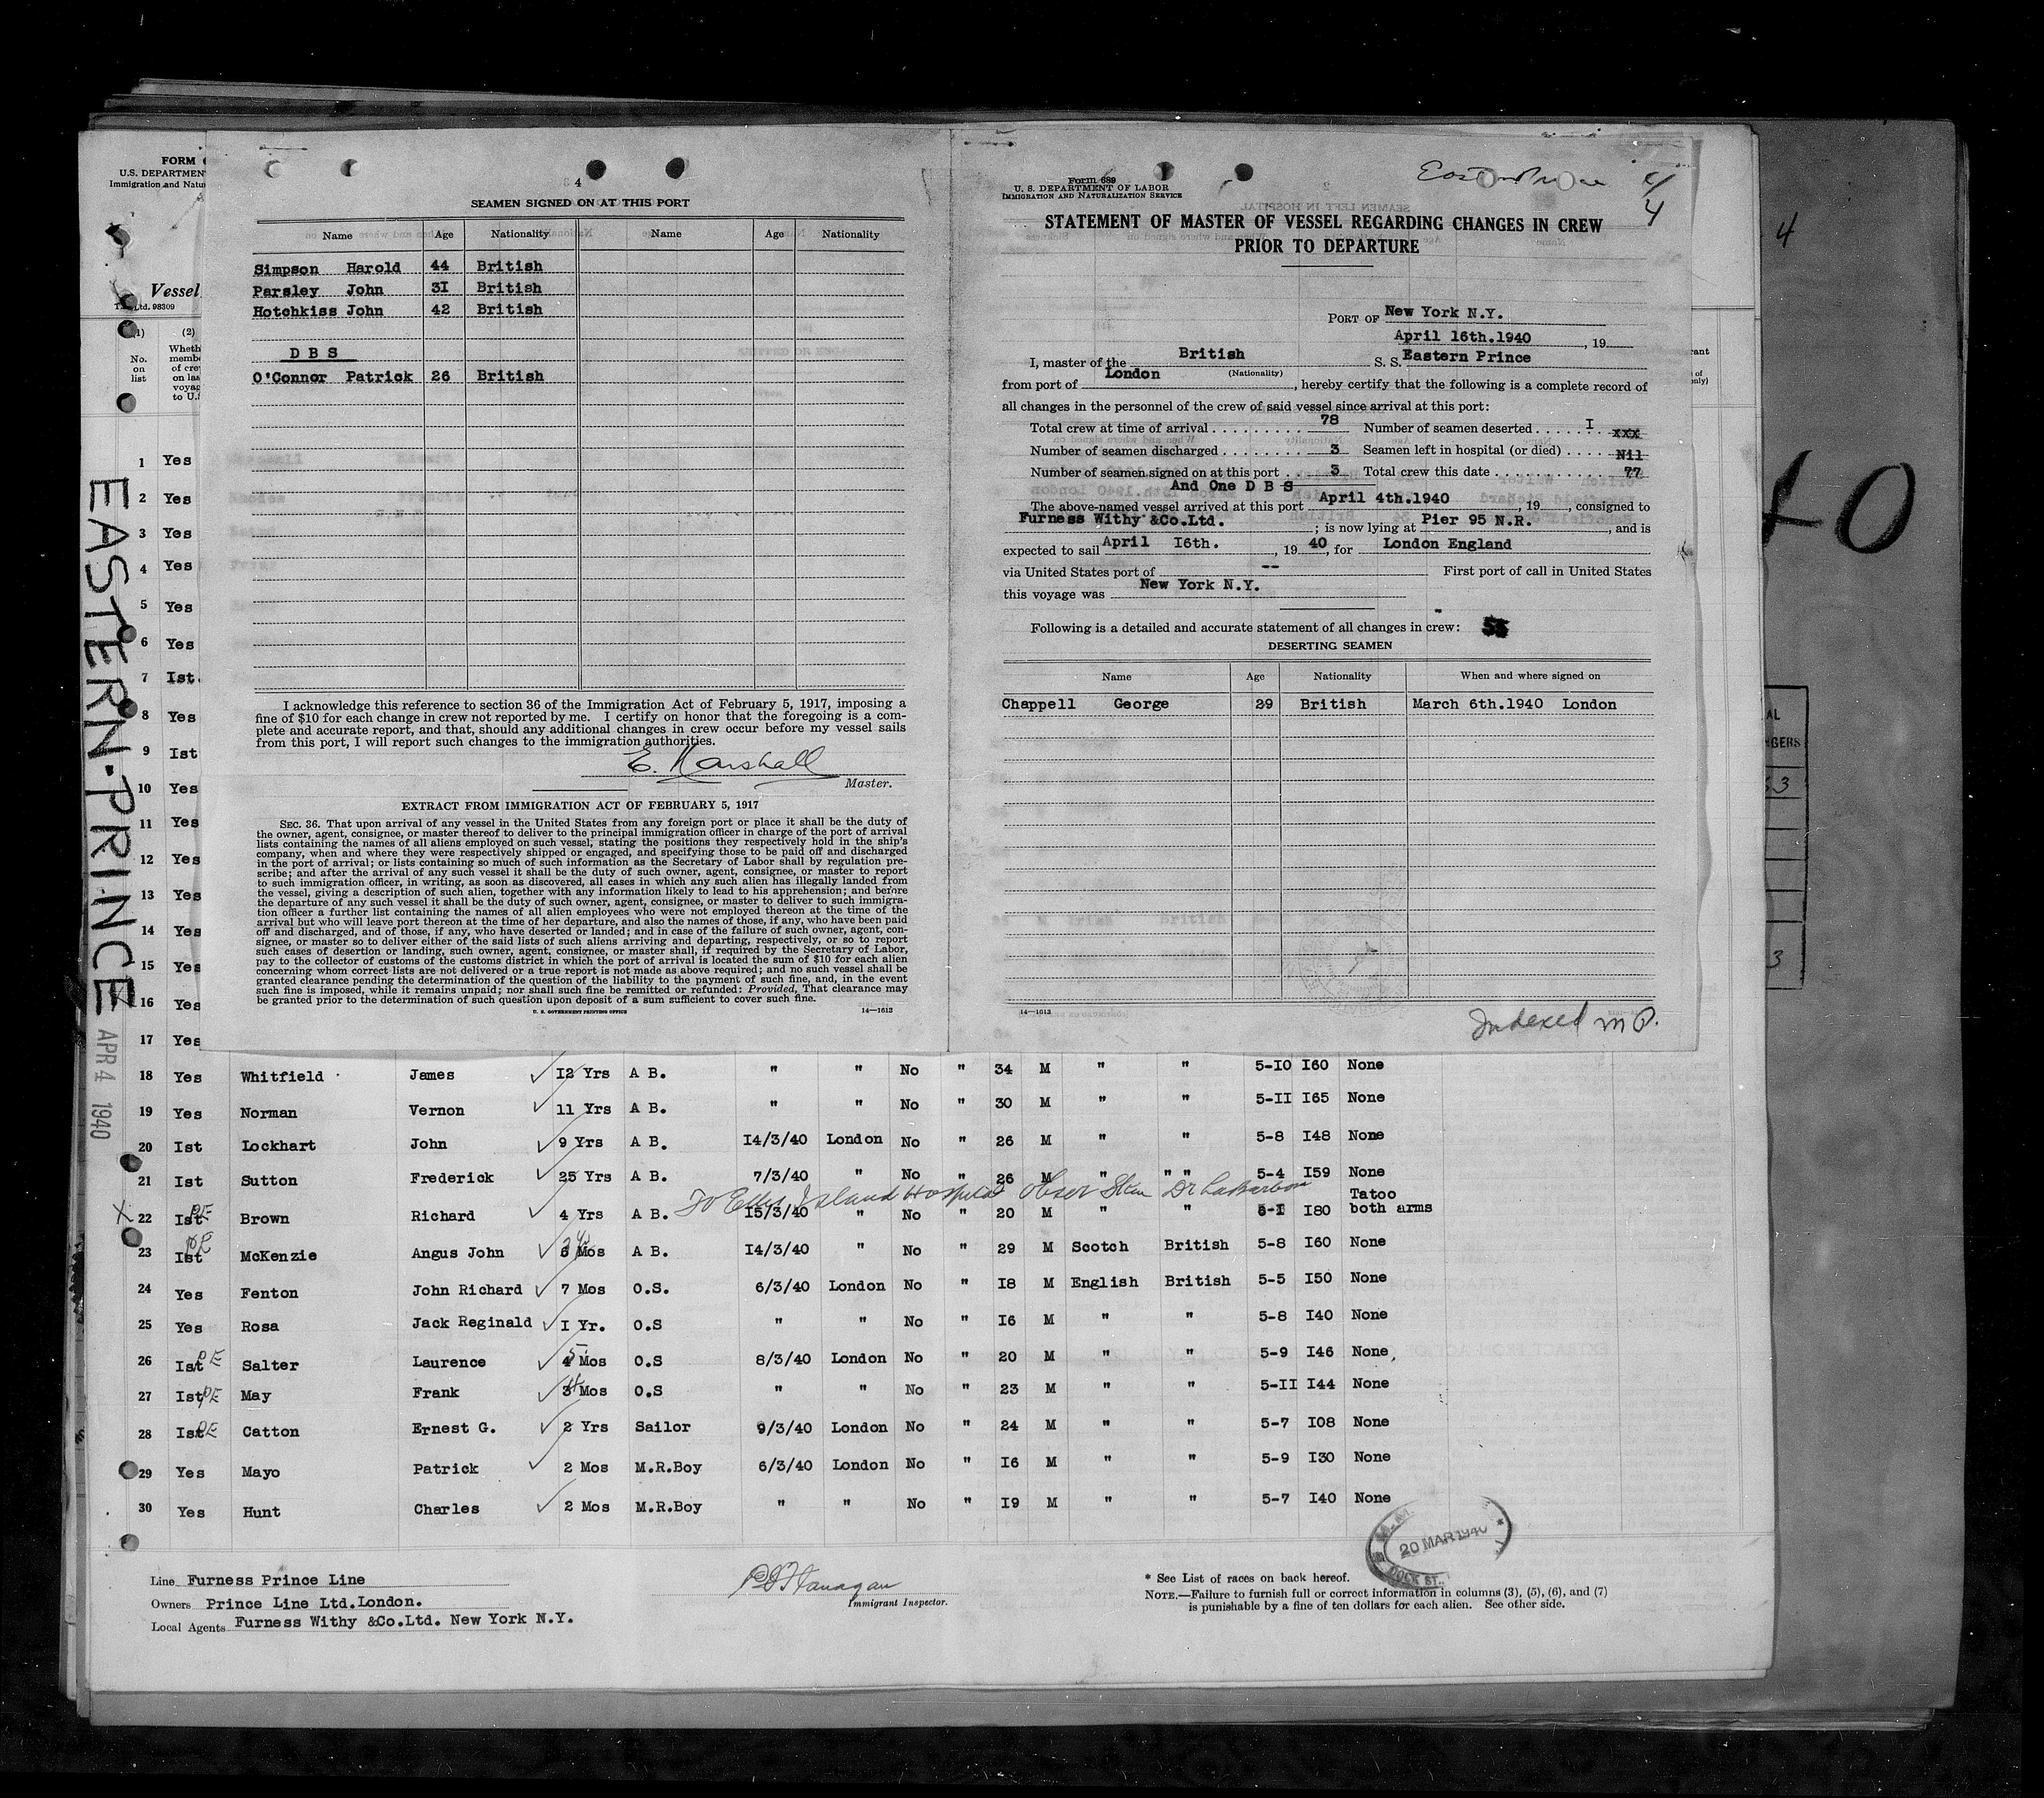 4
SEAMEN SIGNED ON AT THIS PORT
Name Age Nationality Name Age Nationality
Simpson Harold 44 British
Parsley John 3I British
Hotchkiss John 42 British
D B S
O'Connor Patrick 26 British
I acknowledge this reference to section 36 of the Immigration Act of February 5, 1917, imposing a
fine of $10 for each change in crew not reported by me. I certify on honor that the foregoing is a com-
plete and accurate report, and that, should any additional changes in crew occur before my vessel sails
from this port, I will report such changes to the immigration authorities.
E. Marshall
Master.
EXTRACT FROM IMMIGRATION ACT OF FEBRUARY 5, 1917
SEC. 36. That upon arrival of any vessel in the United States from any foreign port or place it shall be the duty of
the owner, agent, consignee, or master thereof to deliver to the principal immigration officer in charge of the port of arrival
lists containing the names of all aliens employed on such vessel, stating the positions they respectively hold in the ship's
company, when and where they were respectively shipped or engaged, and specifying those to be paid off and discharged
in the port of arrival; or lists containing so much of such information as the Secretary of Labor shall by regulation pre-
scribe; and after the arrival of any such vessel it shall be the duty of such owner, agent, consignee, or master to report
to such immigration officer, in writing, as soon as discovered, all cases in which any such alien has illegally landed from
the vessel, giving a description of such alien, together with any information likely to lead to his apprehension; and before
the departure of any such vessel it shall be the duty of such owner, agent, consignee, or master to deliver to such immigra-
tion officer a further list containing the names of all alien employees who were not employed thereon at the time of the
arrival but who will leave port thereon at the time of her departure, and also the names of those, if any, who have been paid
off and discharged, and of those, if any, who have deserted or landed; and in case of the failure of such owner, agent, con-
signee, or master so to deliver either of the said lists of such aliens arriving and departing, respectively, or so to report
such cases of desertion or landing, such owner, agent, consignee, or master shall, if required by the Secretary of Labor,
pay to the collector of customs of the customs district in which the port of arrival is located the sum of $10 for each alien
concerning whom correct lists are not delivered or a true report is not made as above required; and no such vessel shall be
granted clearance pending the determination of the question of the liability to the payment of such fine, and, in the event
such fine is imposed, while it remains unpaid; nor shall such fine be remitted or refunded: Provided, That clearance may
be granted prior to the determination of such question upon deposit of a sum sufficient to cover such fine.
U. S. GOVERNMENT PRINTING OFFICE 14—1613
Form 689
U. S. DEPARTMENT OF LABOR
IMMIGRATION AND NATURALIZATION SERVICE
Eastern Prince 4/4
STATEMENT OF MASTER OF VESSEL REGARDING CHANGES IN CREW
PRIOR TO DEPARTURE
PORT OF New York N.Y.
April 16th.1940, 19
I, master of the British S. S. Eastern Prince
(Nationality)
from port of London, hereby certify that the following is a complete record of
all changes in the personnel of the crew of said vessel since arrival at this port:
Total crew at time of arrival 78 Number of seamen deserted I xxx
Number of seamen discharged 3 Seamen left in hospital (or died) Nil
Number of seamen signed on at this port 3 Total crew this date 77
And One D B S
The above-named vessel arrived at this port April 4th.1940, 19, consigned to
Furness Withy &Co.Ltd. ; is now lying at Pier 95 N.R., and is
expected to sail April I6th., 19 40, for London England
via United States port of -- First port of call in United States
this voyage was New York N.Y.
Following is a detailed and accurate statement of all changes in crew:
DESERTING SEAMEN
Name Age Nationality When and where signed on
Chappell George 29 British March 6th.1940 London
14—1613
Indexed M P.
FORM
U.S. DEPARTMENT
Immigration and Natur
Vessel
T. Ltd. 98309
(1) (2)
No. on list
Wheth
memb
of crew
on las
voyag
to U.S
EASTERN·PRINCE
APR 4 1940
1 Yes
2 Yes
3 Yes
4 Yes
5 Yes
6 Yes
7 Ist.
8 Yes
9 Ist
10 Yes
11 Yes
12 Yes
13 Yes
14 Yes
15 Yes
16 Yes
17 Yes
18 Yes Whitfield James I2 Yrs A B. " " No " 34 M " " 5-IO I60 None
19 Yes Norman Vernon 11 Yrs A B. " " No " 30 M " " 5-II I65 None
20 Ist Lockhart John 9 Yrs A B. I4/3/40 London No " 26 M " " 5-8 I48 None
21 Ist Sutton Frederick 25 Yrs A B. 7/3/40 " No " 26 M " " " 5-4 I59 None
To Ellis Island Hospital Obser Skin Dr
22 Ist PE Brown Richard 4 Yrs A B. I5/3/40 " No " 20 M " " 6-I I80 Tatoo both arms
23 Ist PE McKenzie Angus John 6 Mos A B. I4/3/40 " No " 29 M Scotch British 5-8 I60 None
24 Yes Fenton John Richard 7 Mos O.S. 6/3/40 London No " I8 M English British 5-5 I50 None
25 Yes Rosa Jack Reginald I Yr. O.S " " No " I6 M " " 5-8 I40 None
26 Ist PE Salter Laurence 4 5 Mos O.S 8/3/40 London No " 20 M " " 5-9 I46 None
27 Ist PE May Frank 3 4 Mos O.S " " No " 23 M " " 5-II I44 None
28 Ist PE Catton Ernest G. 2 Yrs Sailor 9/3/40 London No " 24 M " " 5-7 I08 None
29 Yes Mayo Patrick 2 Mos M.R.Boy 6/3/40 London No " I6 M " " 5-9 I30 None
30 Yes Hunt Charles 2 Mos M.R.Boy " " No " I9 M " " 5-7 I40 None
20 MAR 1940
DOCK ST.
Line Furness Prince Line
Owners Prince Line Ltd.London.
Local Agents Furness Withy &Co.Ltd. New York N.Y.
Flanagan
Immigrant Inspector.
* See List of races on back hereof.
NOTE.—Failure to furnish full or correct information in columns (3), (5), (6), and (7)
is punishable by a fine of ten dollars for each alien. See other side.
4
40
AL
NGERS
3